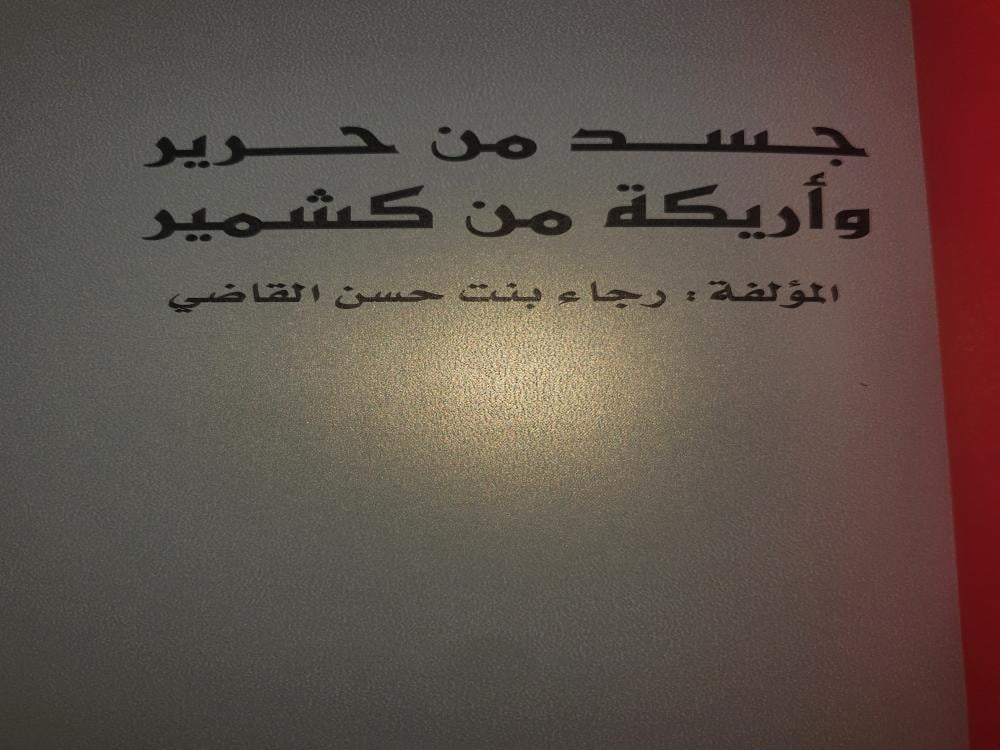 جسد من حرير
وأريكة من كشمير
المؤلفة : رجاء بنت حسن القاضي